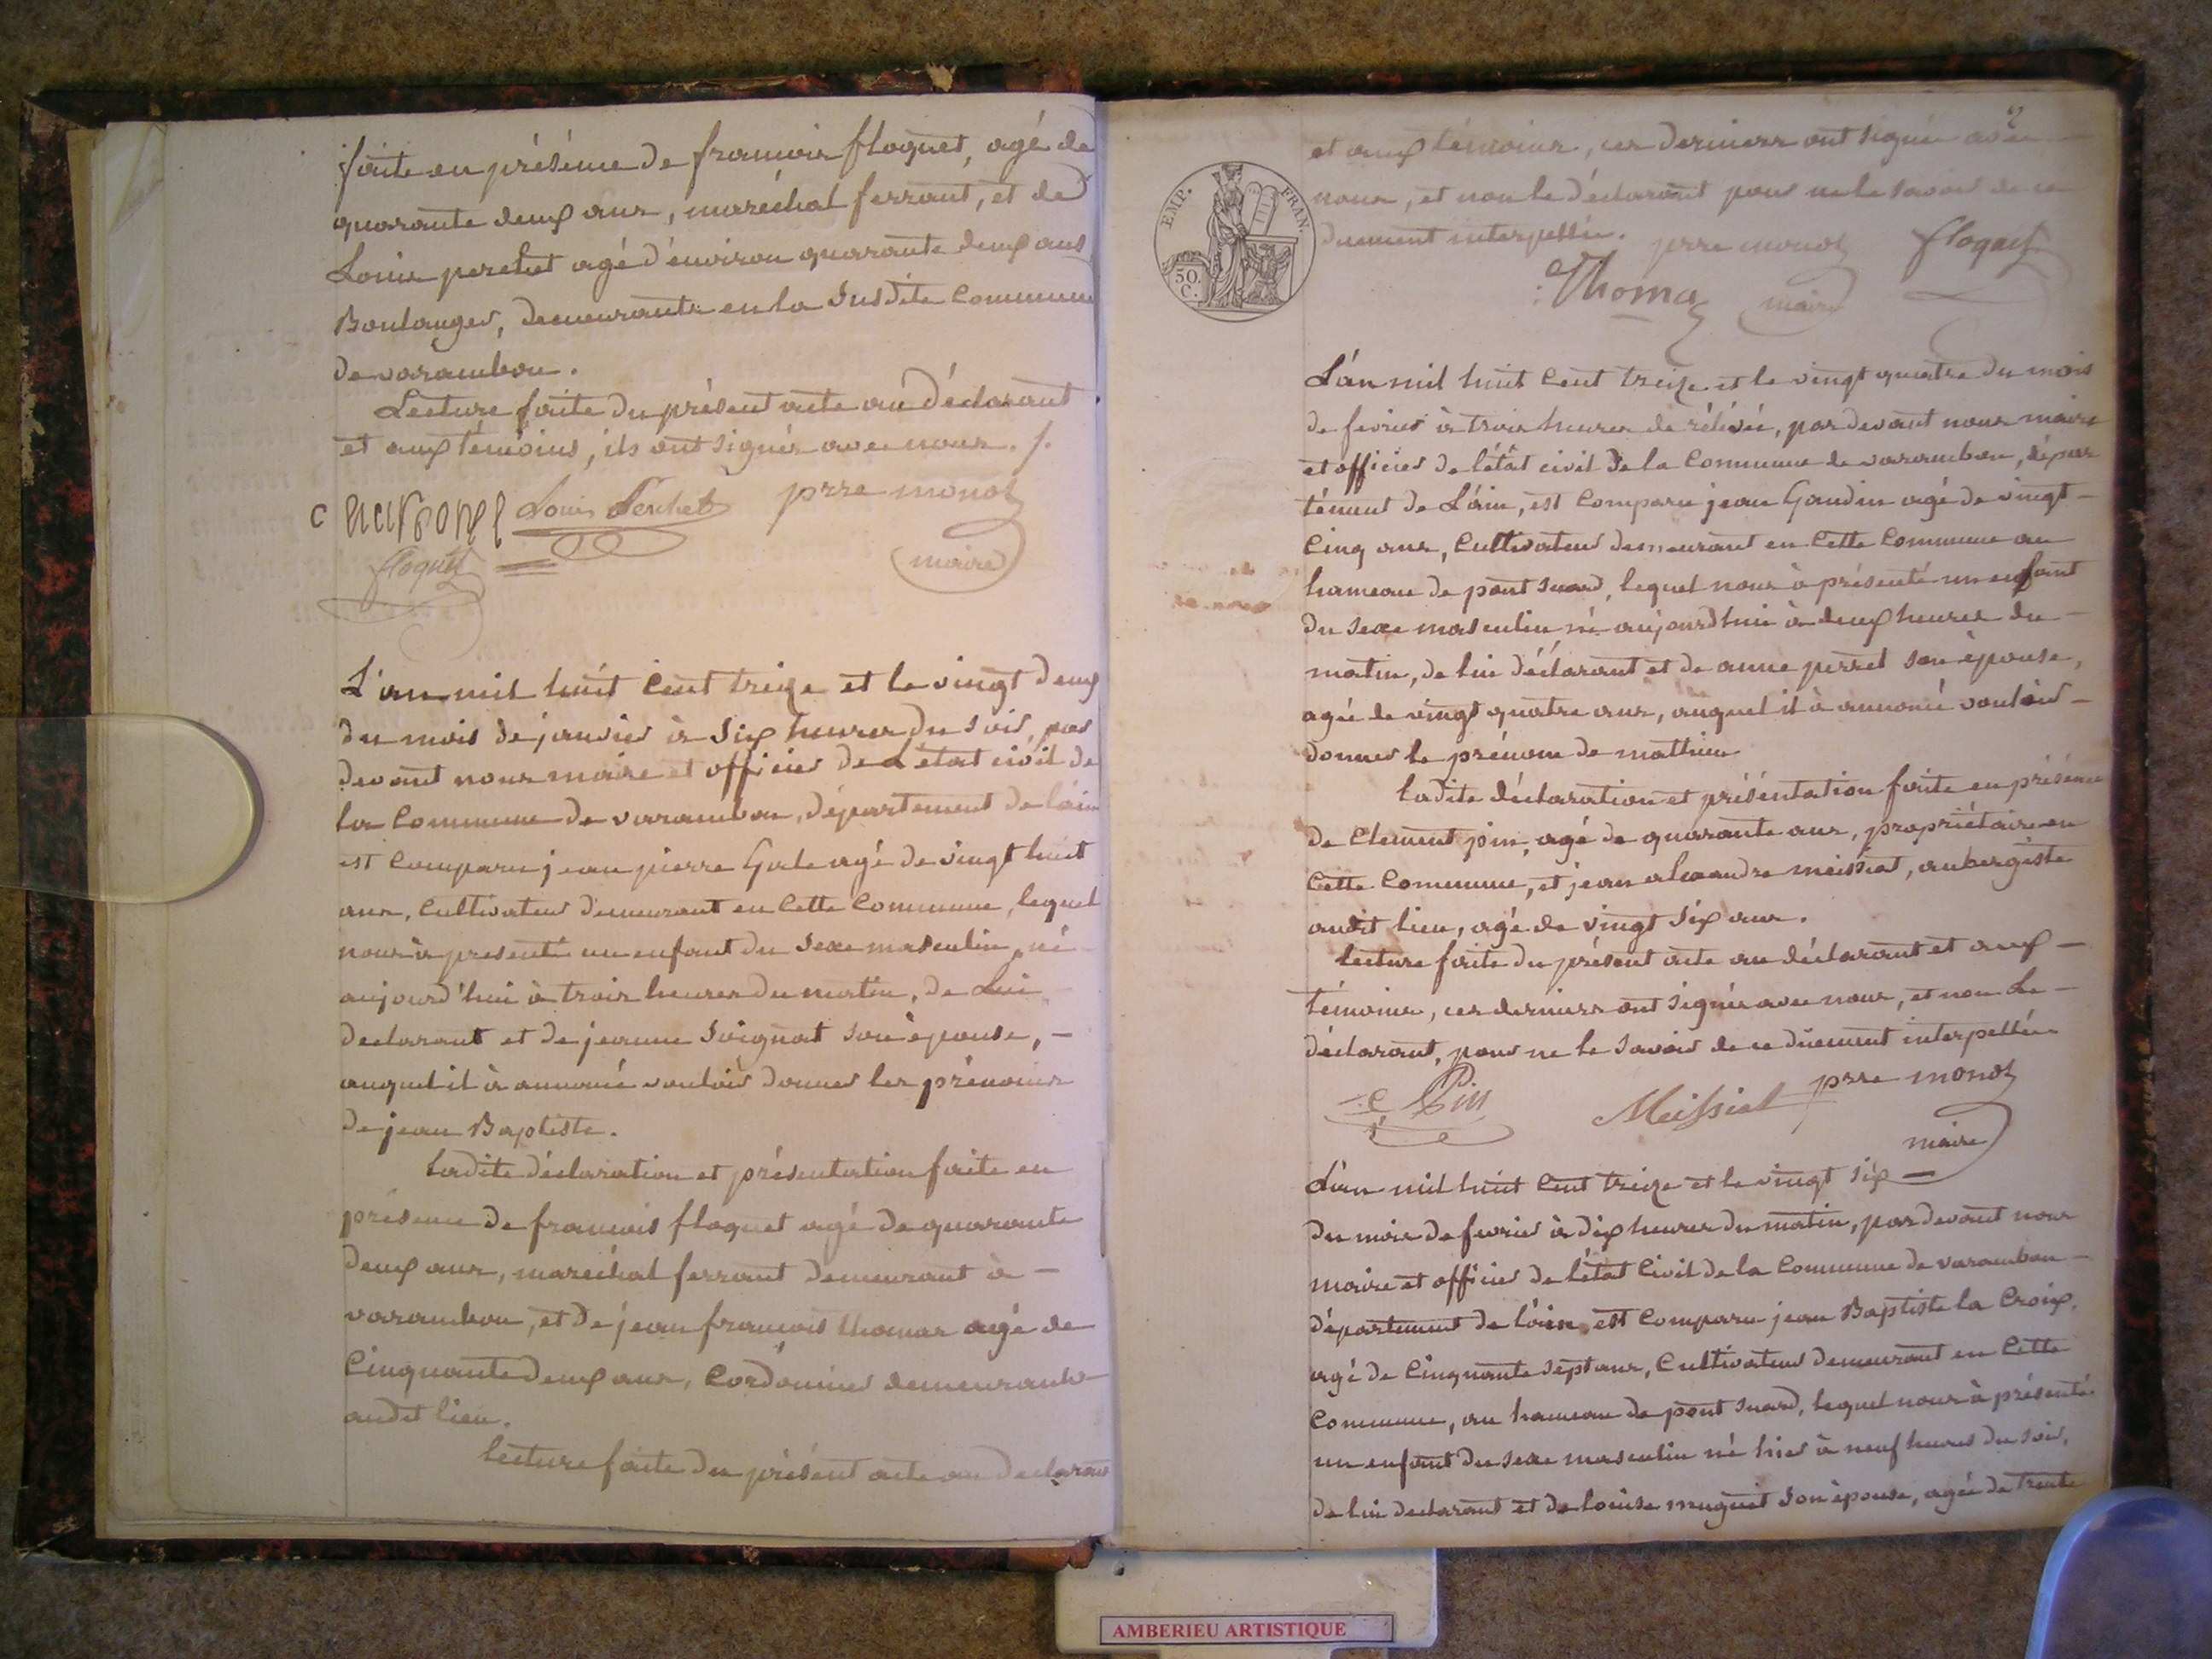 faite en présénce de francois floquet, agé de
quarante deux ans, maréchal ferrant, et de
Louis perchet agé d'énviron quarante deux ans
Boulanger, demeurants en la Susdite Commune
de varambon.
Lecture faite du présent acte au déclarant
et aux témoins, ils ont signés avec nous. /.
Louis Perchet prre monoz
floquet maire
L'an mil huit Cent treize et le vingt deux
du mois de janvier à Six heures du Soir, par
devant nous maire et officier de L'état civil de
la Commune de varambon, département de láin
est Comparu jean pierre Gale agé de vingt huit
ans, Cultivateur demeurant en Cette Commune, lequel
nous à presenté un enfant du Sexe masculin, né
aujourd'hui à trois heures du matin, de Lui
declarant et de jeanne Soignat son épouse, -
auquel il à annoncé vouloir donner les prénoms
de jean Baptiste.
Ladite déclaration et présentation faite en
présence de francois floquet agé de quarante
deux ans, maréchal ferrant demeurant à -
varambon, et de jean francois thomas agé de
Cinquante deux ans, Cordonnier demeurants
audit lieu.
Lecture faite du présent acte au declarant
et aux témoins, ces derniers ont signés avec
nous, et non le déclarant pour ne le savoir de ce
duement interpellée. prre monoz floquet
Thomas maire
EMP. FRAN.
50
C.
L'án mil huit Cent treize et le vingt quatre du mois
de fevrier à trois heures de rélévée, par devant nous maire
et officier de l'état civil de la Commune de varambon, dépar
tément de L'áin, est Comparu jean Gaudin agé de vingt -
Cinq ans, Cultivateur demeurant en Cette Commune au
hameau de pont Suard, lequel nous à présenté un enfant
du Sexe masculin né aujourdhui à deux heures du -
matin, de lui déclarant et de anne perret son épouse,
agée de vingt quatre ans, auquel il à annoncé vouloir -
donner le prénom de mathieu
Ladite déclaration et préséntation faite en présence
de Clement pin, agé de quarante ans, propriétaire en
Cette Commune, et jean alexandre meissiat, aubergiste
audit lieu, agé de vingt Six ans.
Lecture faite du présent acte au déclarant et aux -
témoins, ces derniers ont signés avec nous, et non Le -
déclarant, pour ne le Savoir de ce dûement interpellée
C Pin Meissiat prre monoz
maire
L'án mil huit Cent treize et le vingt Six -
du mois de fevrier à dix heures du matin, par devant nous
maire et officier de l'état Civil de la Commune de varambon -
département de l'áin, est Comparu jean Baptiste la Croix,
agé de Cinquante Sept ans, Cultivateur demeurant en Cette
Commune, au hameau de pont Suard, lequel nous à présenté
un enfant du Sexe masculin né hier à neuf heures du Soir,
de lui declarant et de louise muguet Son épouse, agée de trente
AMBERIEU ARTISTIQUE